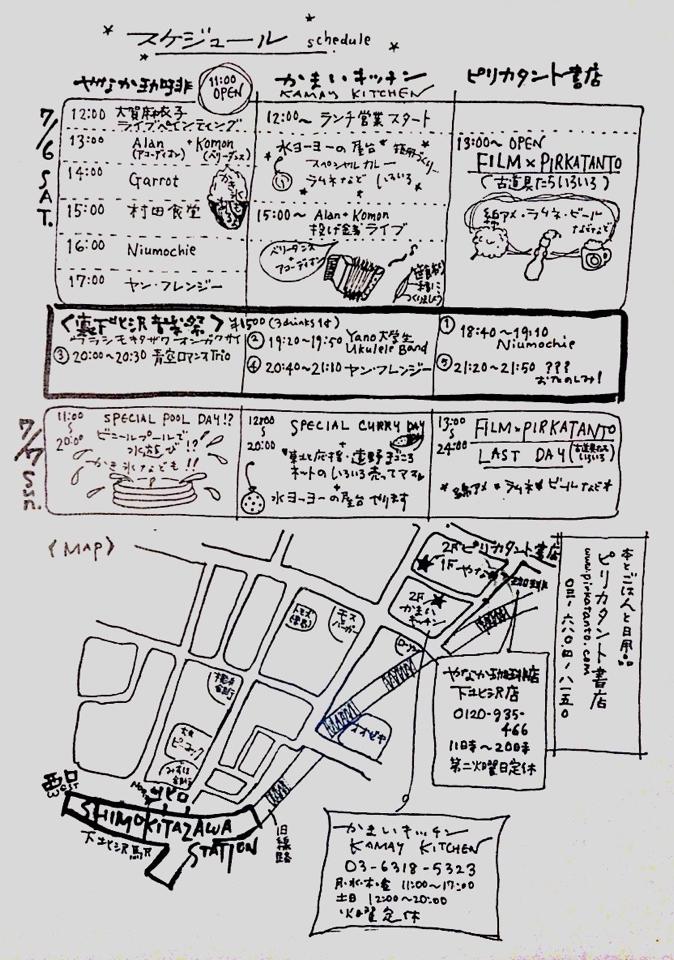 スケジュール schedule
やなか珈琲 11:00 OPEN
かまいキッチン
KAMAY KITCHEN
ピリカタント書店
7/6 SAT.
12:00 大賀麻衣子
ライブペインティング
13:00 Alan + Komon
(アコーディオン) (ベリーダンス)
14:00 Garrot
15:00 村田食堂
16:00 Niumochie
17:00 ヤン・フレンジー
かき氷
12:00〜 ランチ営業スタート
水ヨーヨーの屋台
スペシャルカレー
ラムネなど いろいろ
15:00〜 Alan+Komon
投げ銭ライブ
ベリーダンス
+
アコーディオン
13:00〜 OPEN
FILM×PIRKATANTO
(古道具たちいろいろ)
綿アメ・ラムネ・ビール
などなど
<裏下北沢音楽祭> ¥1500 (3drinks付)
ウラシモキタザワオンガクサイ
③ 20:00〜20:30 青空ロマンスTrio
② 19:20〜19:50 Yano大学生
Ukulele Band
④ 20:40〜21:10 ヤン・フレンジー
① 18:40〜19:10
Niumochie
⑤ 21:20〜21:50 ???
おたのしみ!
7/7 SUN.
11:00
〜
20:00
SPECIAL POOL DAY!?
ビニールプールで
水遊び!?
かき氷なども!!
12:00
〜
20:00
SPECIAL CURRY DAY
+
東北応援・遠野まごころ
ネットのいろいろ売ってマス
水ヨーヨーの屋台やります
13:00
〜
24:00
FILM×PIRKATANTO
LAST DAY (古道具たちいろいろ)
*綿アメ*ラムネ*ビールなど*
《MAP》
2F ピリカタント書店
1F やなか珈琲
2F
かまい
キッチン
モスバーガー
オオゼキ
大丸
ピーコック
みずほ
銀行
北口
西口
WEST
SHIMOKITAZAWA
STATION
下北沢駅
旧線路
本とごはんと日用品
ピリカタント書店
www.pirkatanto.com
やなか珈琲店
下北沢店
0120-935-
466
11時〜20時
第二火曜日定休
かまいキッチン
KAMAY KITCHEN
03-6318-5323
月・水・木・金 11:00〜17:00
土日 12:00〜20:00
火曜定休